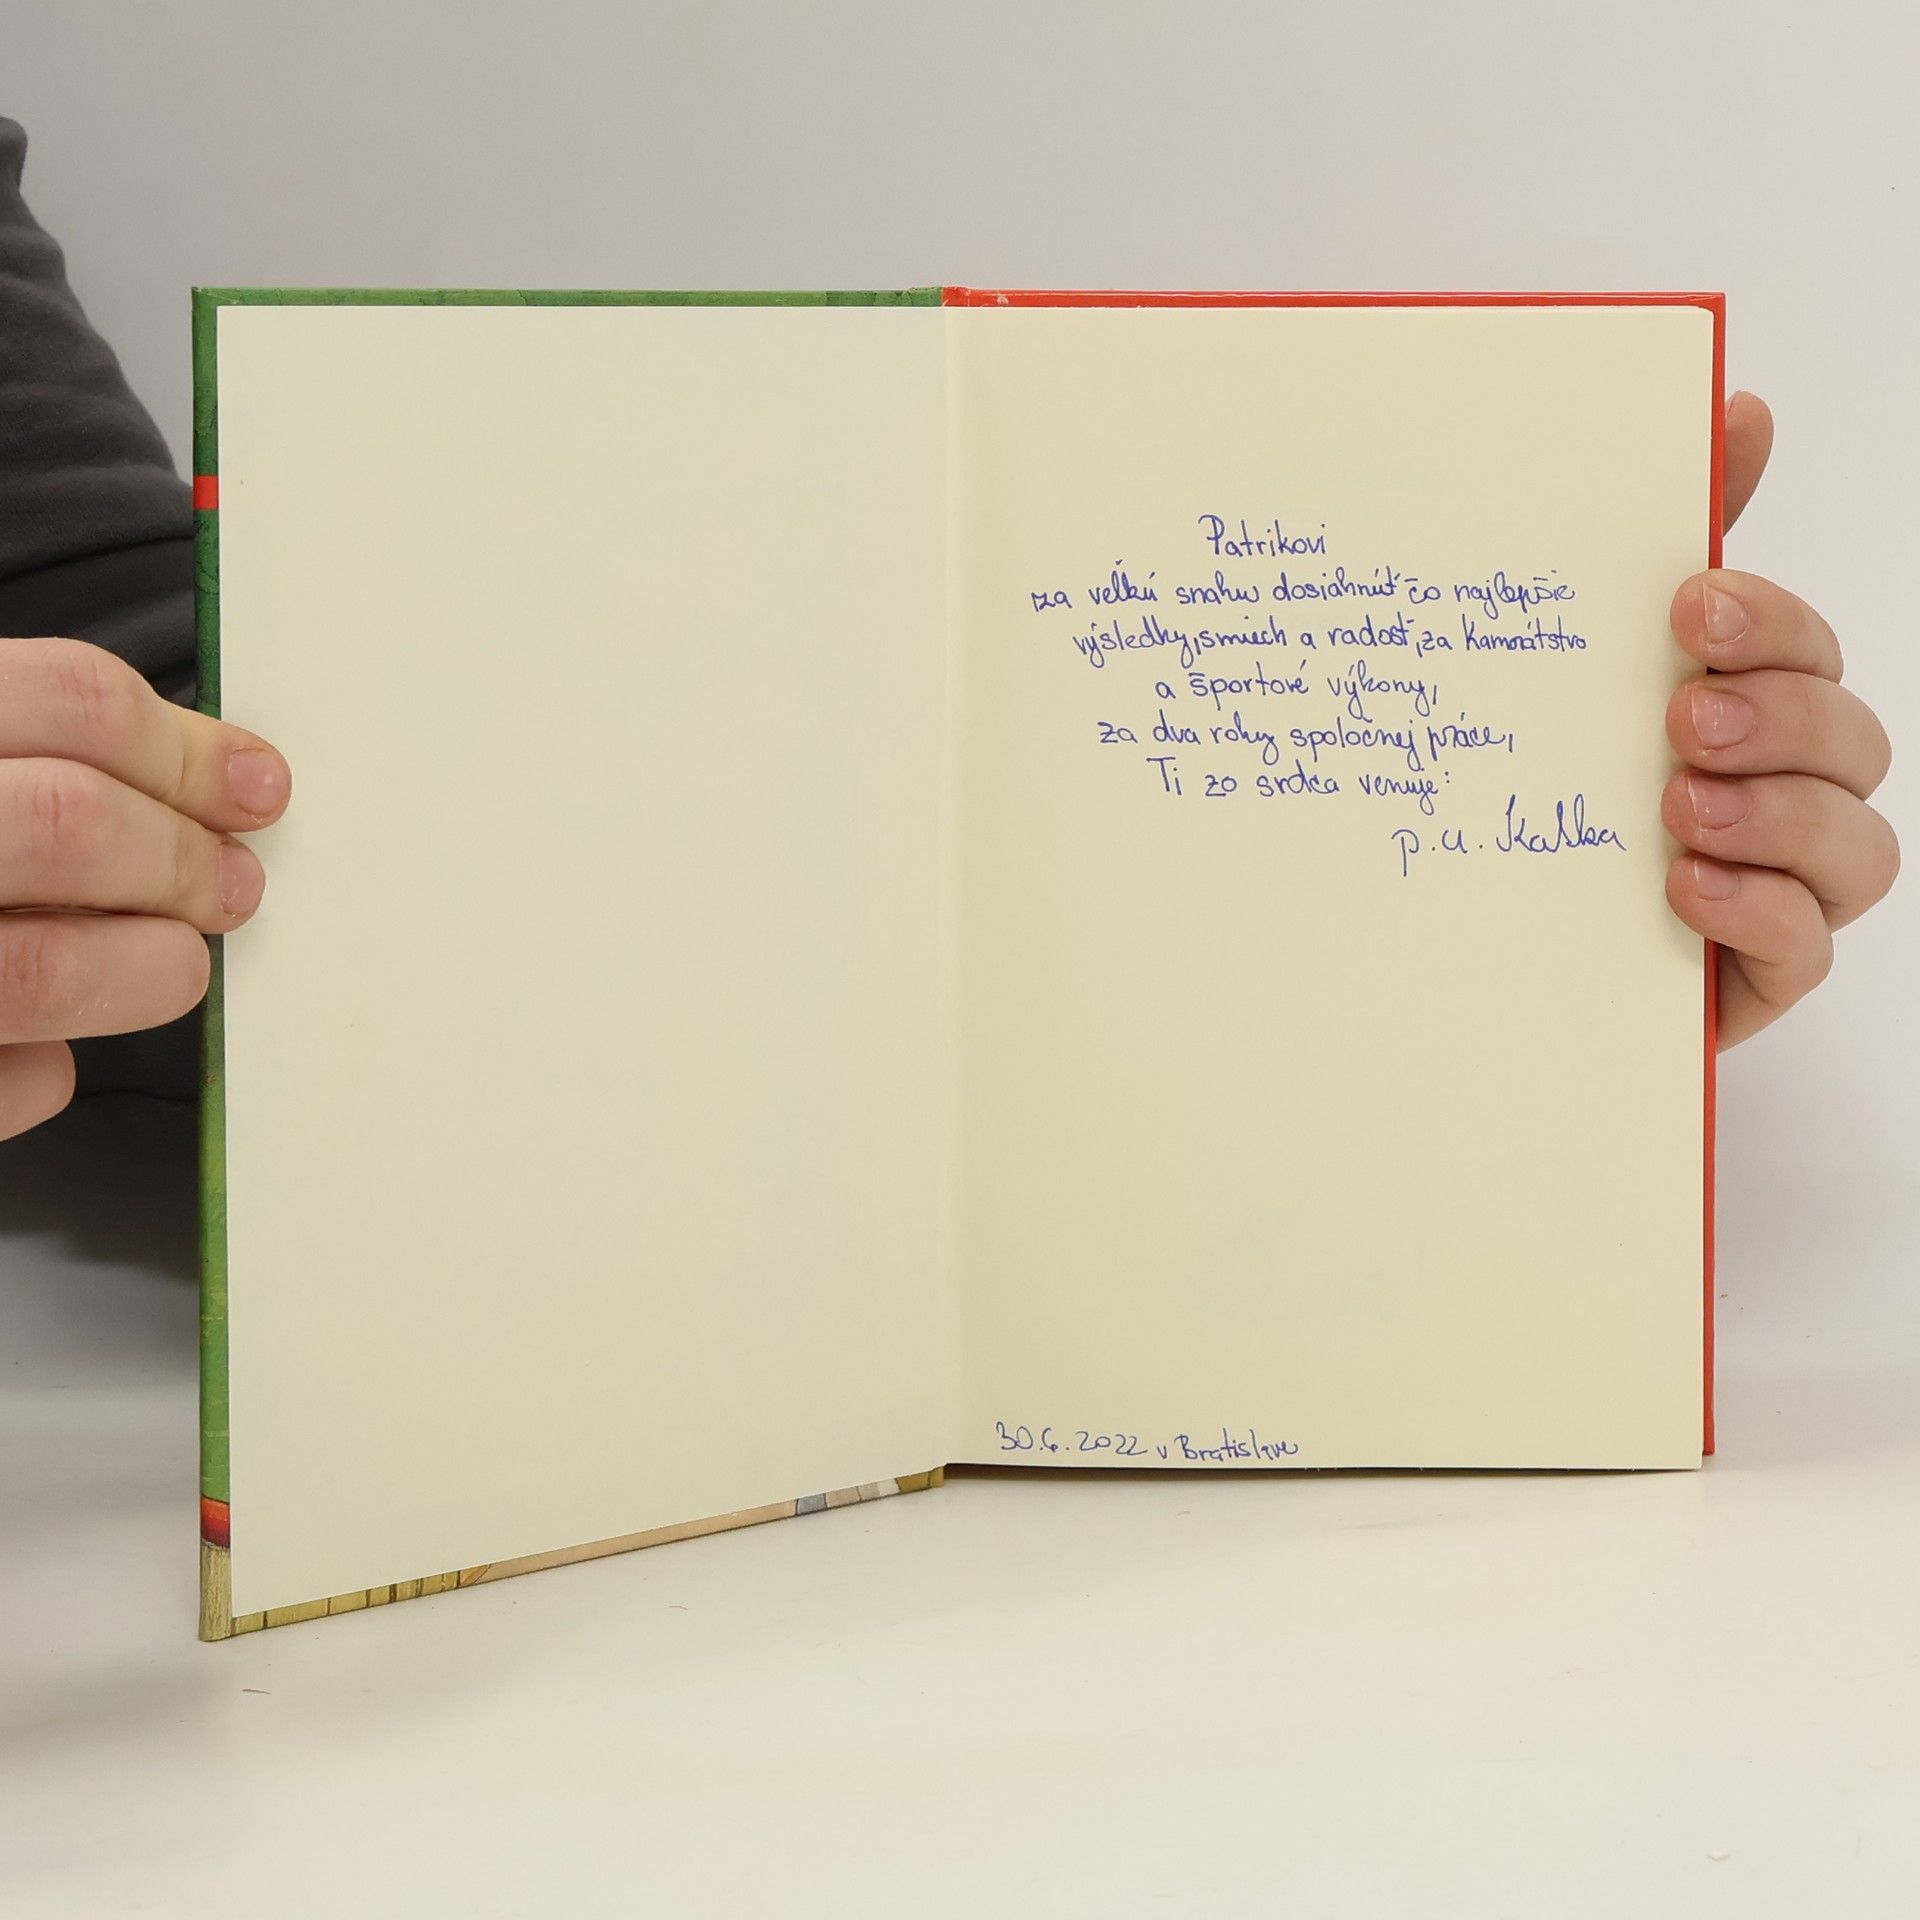 Patrikovi
za veľkú snahu dosiahnuť čo najlepšie
výsledky, smiech a radosť, za kamarátstvo
a športové výkony,
za dva roky spoločnej práce,
Ti zo srdca venuje:
p. u. Katka
30.6.2022 v Bratislave